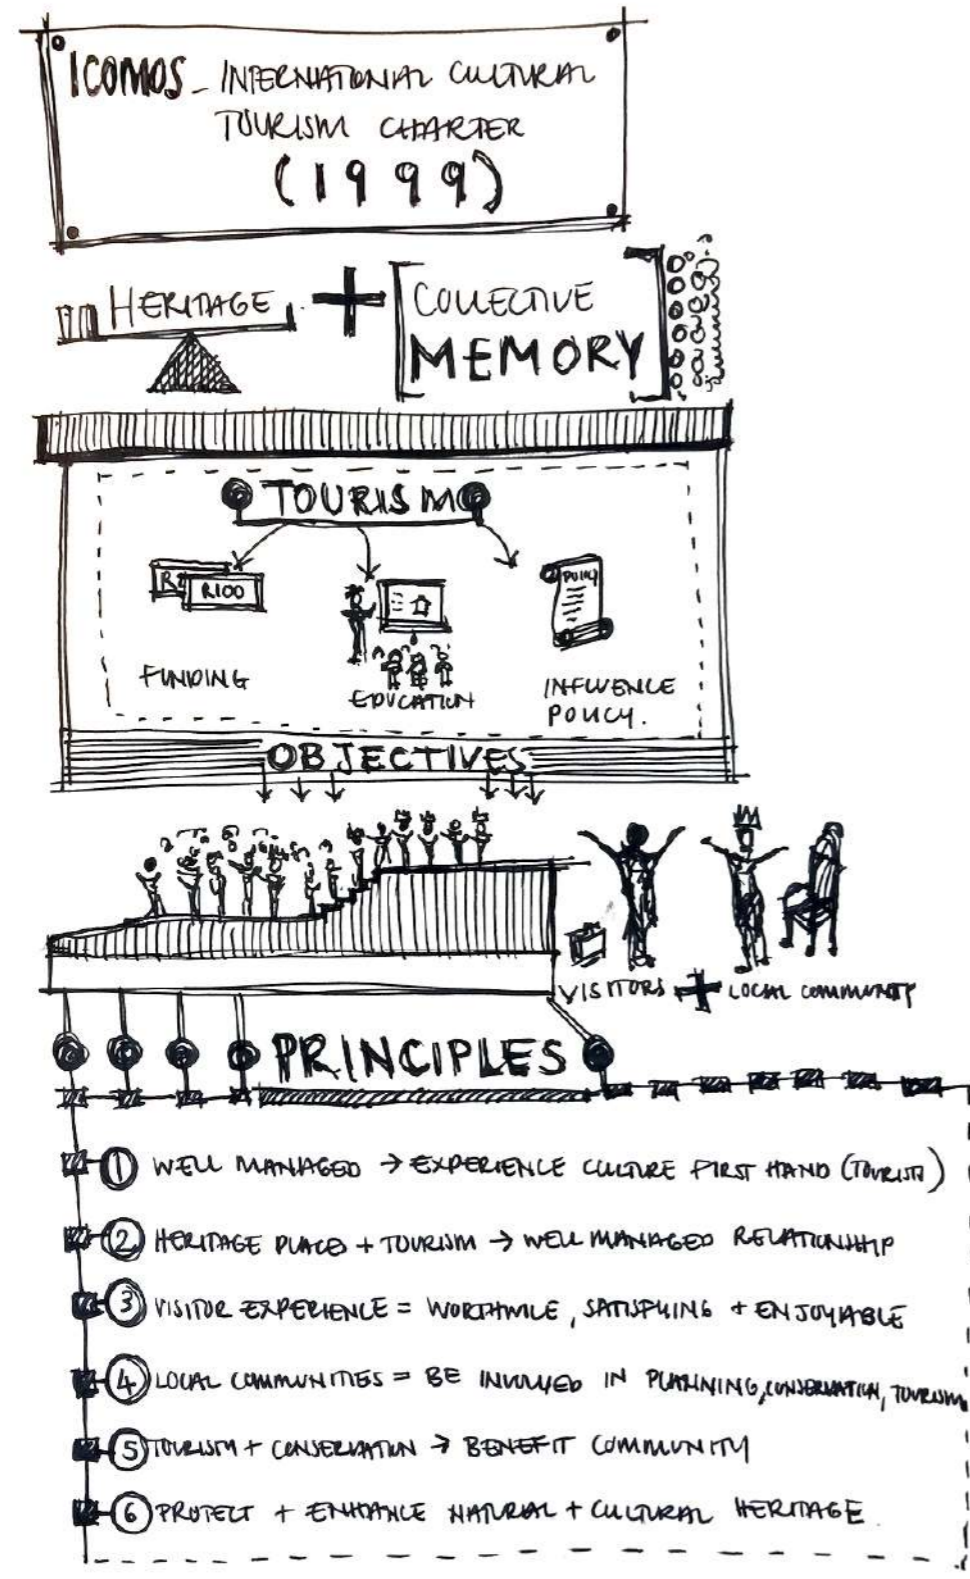 ICOMOS - INTERNATIONAL CULTURAL
TOURISM CHARTER
(1999)
HERITAGE + [COLLECTIVE
MEMORY]
TOURISM
R100
POLICY
FUNDING
EDUCATION
INFLUENCE
POLICY.
OBJECTIVES
VISITORS + LOCAL COMMUNITY
PRINCIPLES
1 WELL MANAGED → EXPERIENCE CULTURE FIRST HAND (TOURISTS)
2 HERITAGE PLACES + TOURISM → WELL MANAGED RELATIONSHIP
3 VISITOR EXPERIENCE = WORTHWILE, SATISFYING + ENJOYABLE
4 LOCAL COMMUNITIES = BE INVOLVED IN PLANNING, CONSERVATION, TOURISM
5 TOURISM + CONSERVATION → BENEFIT COMMUNITY
6 PROTECT + ENHANCE NATURAL + CULTURAL HERITAGE.